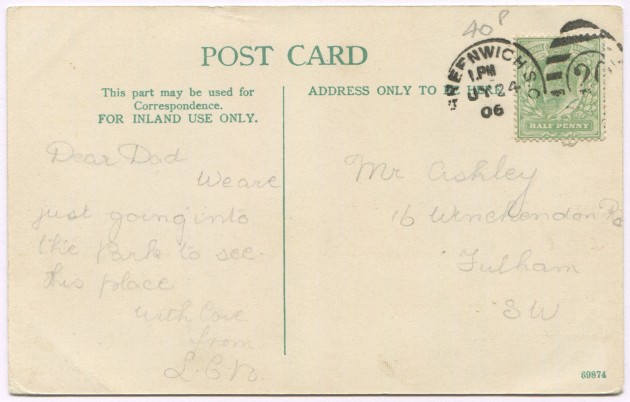 40P
POST CARD
GREENWICH S.O
1.PM
24
06
HALF PENNY
This part may be used for
Correspondence.
FOR INLAND USE ONLY.
ADDRESS ONLY TO BE HERE
Dear Dad
We are
just going into
the Park to see
this place
with Love
from
Mr Ashley
16 Winchendon Rd
Fulham
SW
69874